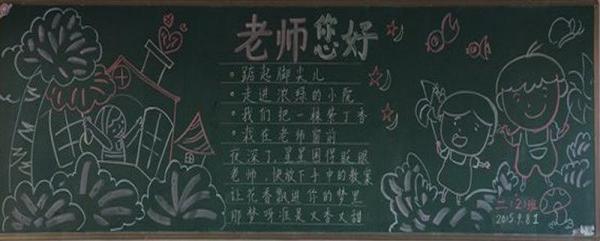 老师您好
踮起脚尖儿
走进浓绿的小院
我们把一棵紫丁香
栽在老师窗前
夜深了,星星困得眨眼
老师,快放下手中的教案
让花香飘进你的梦里
那梦呀准是又香又甜
二(2)班